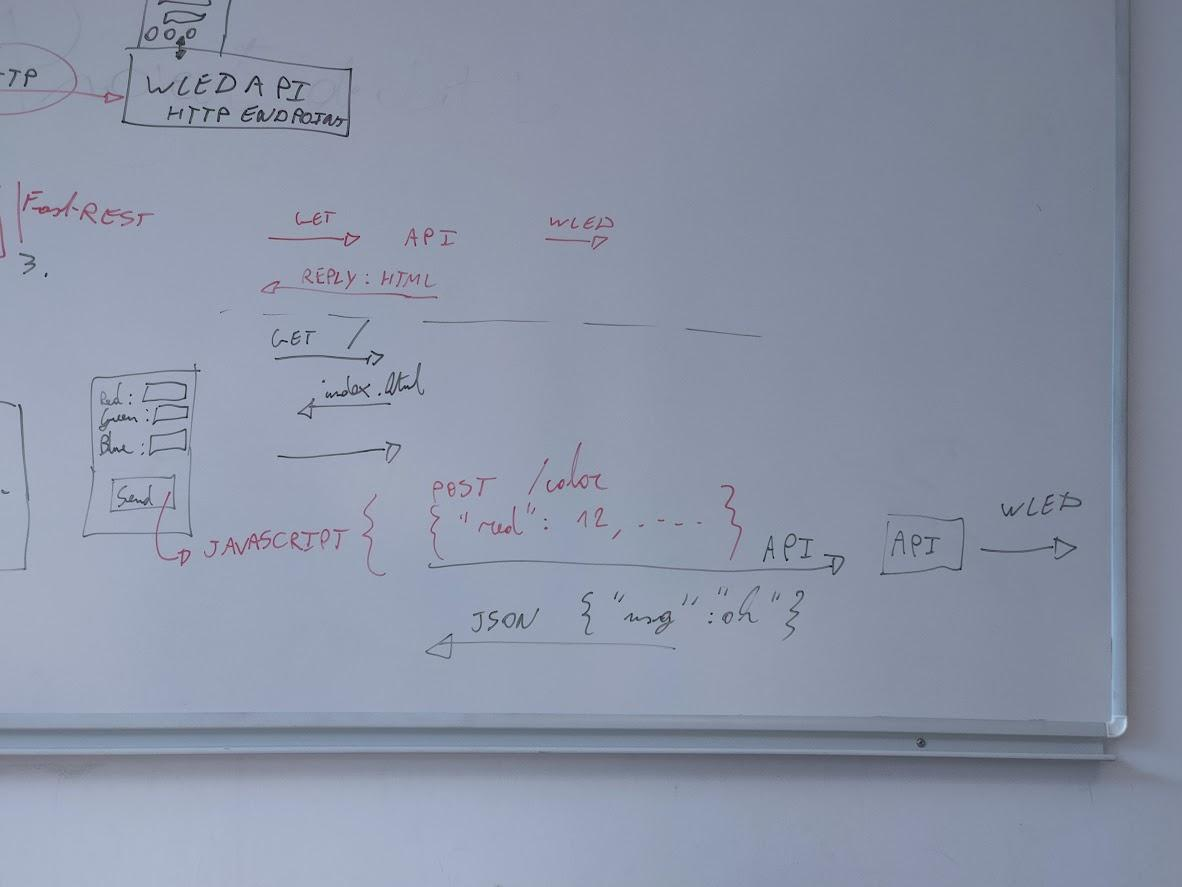 TP
WLED API
HTTP ENDPOINT
REST
3.
GET
API
WLED
REPLY: HTML
GET /
index.html
Red:
Green:
Blue:
Send
JAVASCRIPT {
POST /color
{ "red": 12, ---- }
API
API
WLED
JSON { "msg":"oh" }